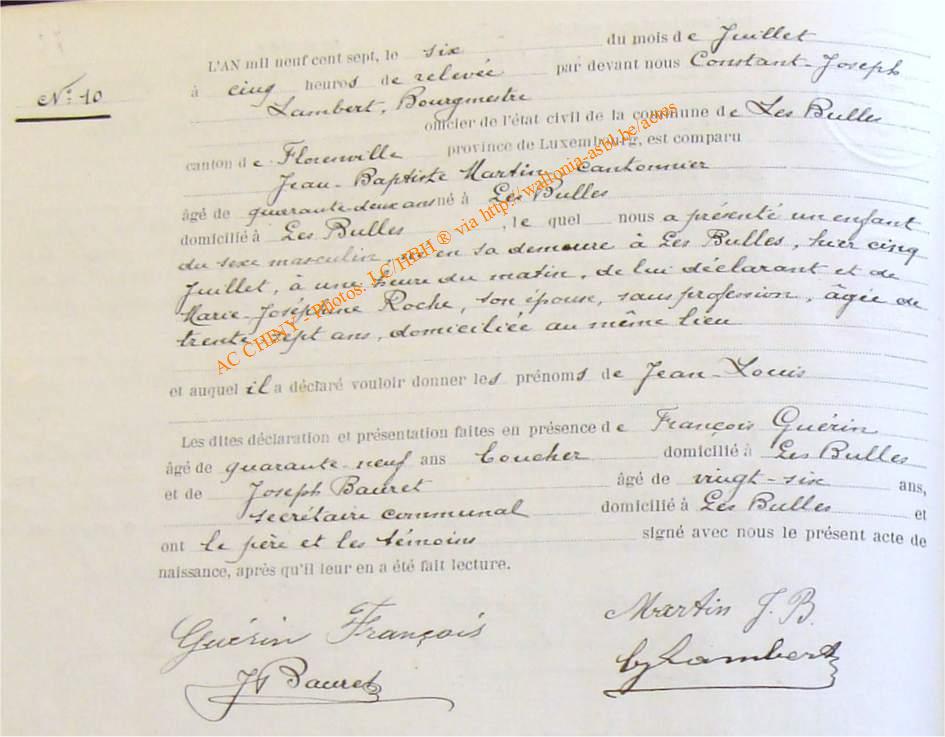 N° 10
L'AN mil neuf cent sept, le six du mois de Juillet
à cinq heures de relevée par devant nous Constant-Joseph
Lambert, Bourgmestre
officier de l'état civil de la commune de Les Bulles
canton de Florenville province de Luxembourg, est comparu
Jean-Baptiste Martin, cantonnier
âgé de quarante-deux ans né à Les Bulles
domicilié à Les Bulles, le quel nous a présenté un enfant
du sexe masculin, né en sa demeure à Les Bulles, hier cinq
Juillet, à une heure du matin, de lui déclarant et de
Marie-Joséphine Roche, son épouse, sans profession, âgée de
trente-sept ans, domiciliée au même lieu
et auquel il a déclaré vouloir donner les prénoms de Jean-Louis
Les dites déclaration et présentation faites en présence de François Guérin
âgé de quarante-neuf ans boucher domicilié à Les Bulles
et de Joseph Bauret âgé de vingt-six ans,
secrétaire communal domicilié à Les Bulles et
ont le père et les témoins signé avec nous le présent acte de
naissance, après qu'il leur en a été fait lecture.
Guérin François Martin J. B.
Bauret Lambert
AC CHINY - Photos: LC/HBH ® via http://wallonia-asbl.be/actes